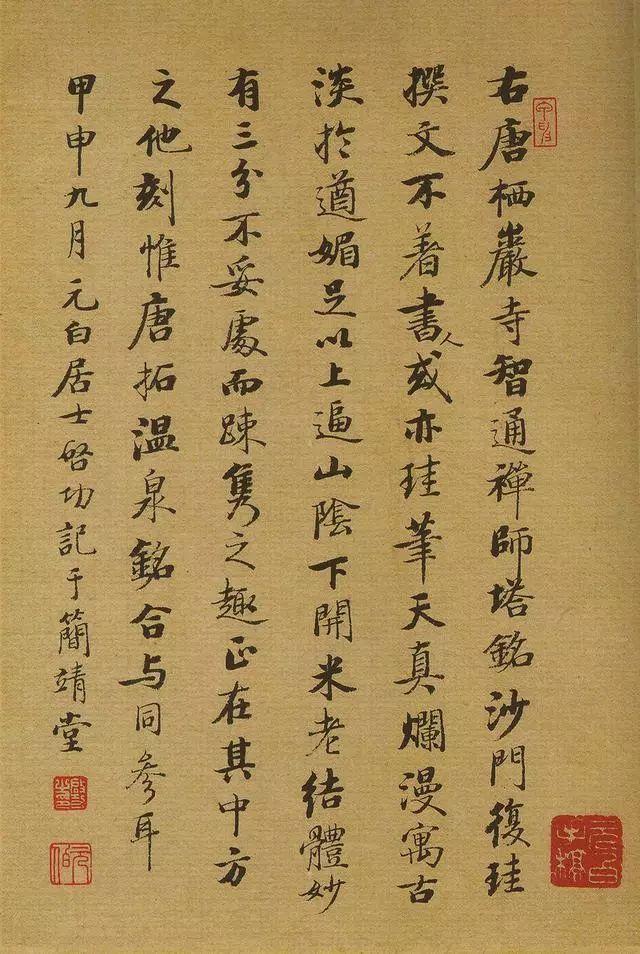 右唐栖巖寺智通禪師塔銘沙門復珪
撰文不著書人或亦珪筆天真爛漫寓古
淡於遒媚足以上逼山陰下開米老結體妙
有三分不妥處而疎雋之趣正在其中方
之他刻惟唐拓温泉銘合与同參耳
甲申九月元白居士啓功記于簡靖堂